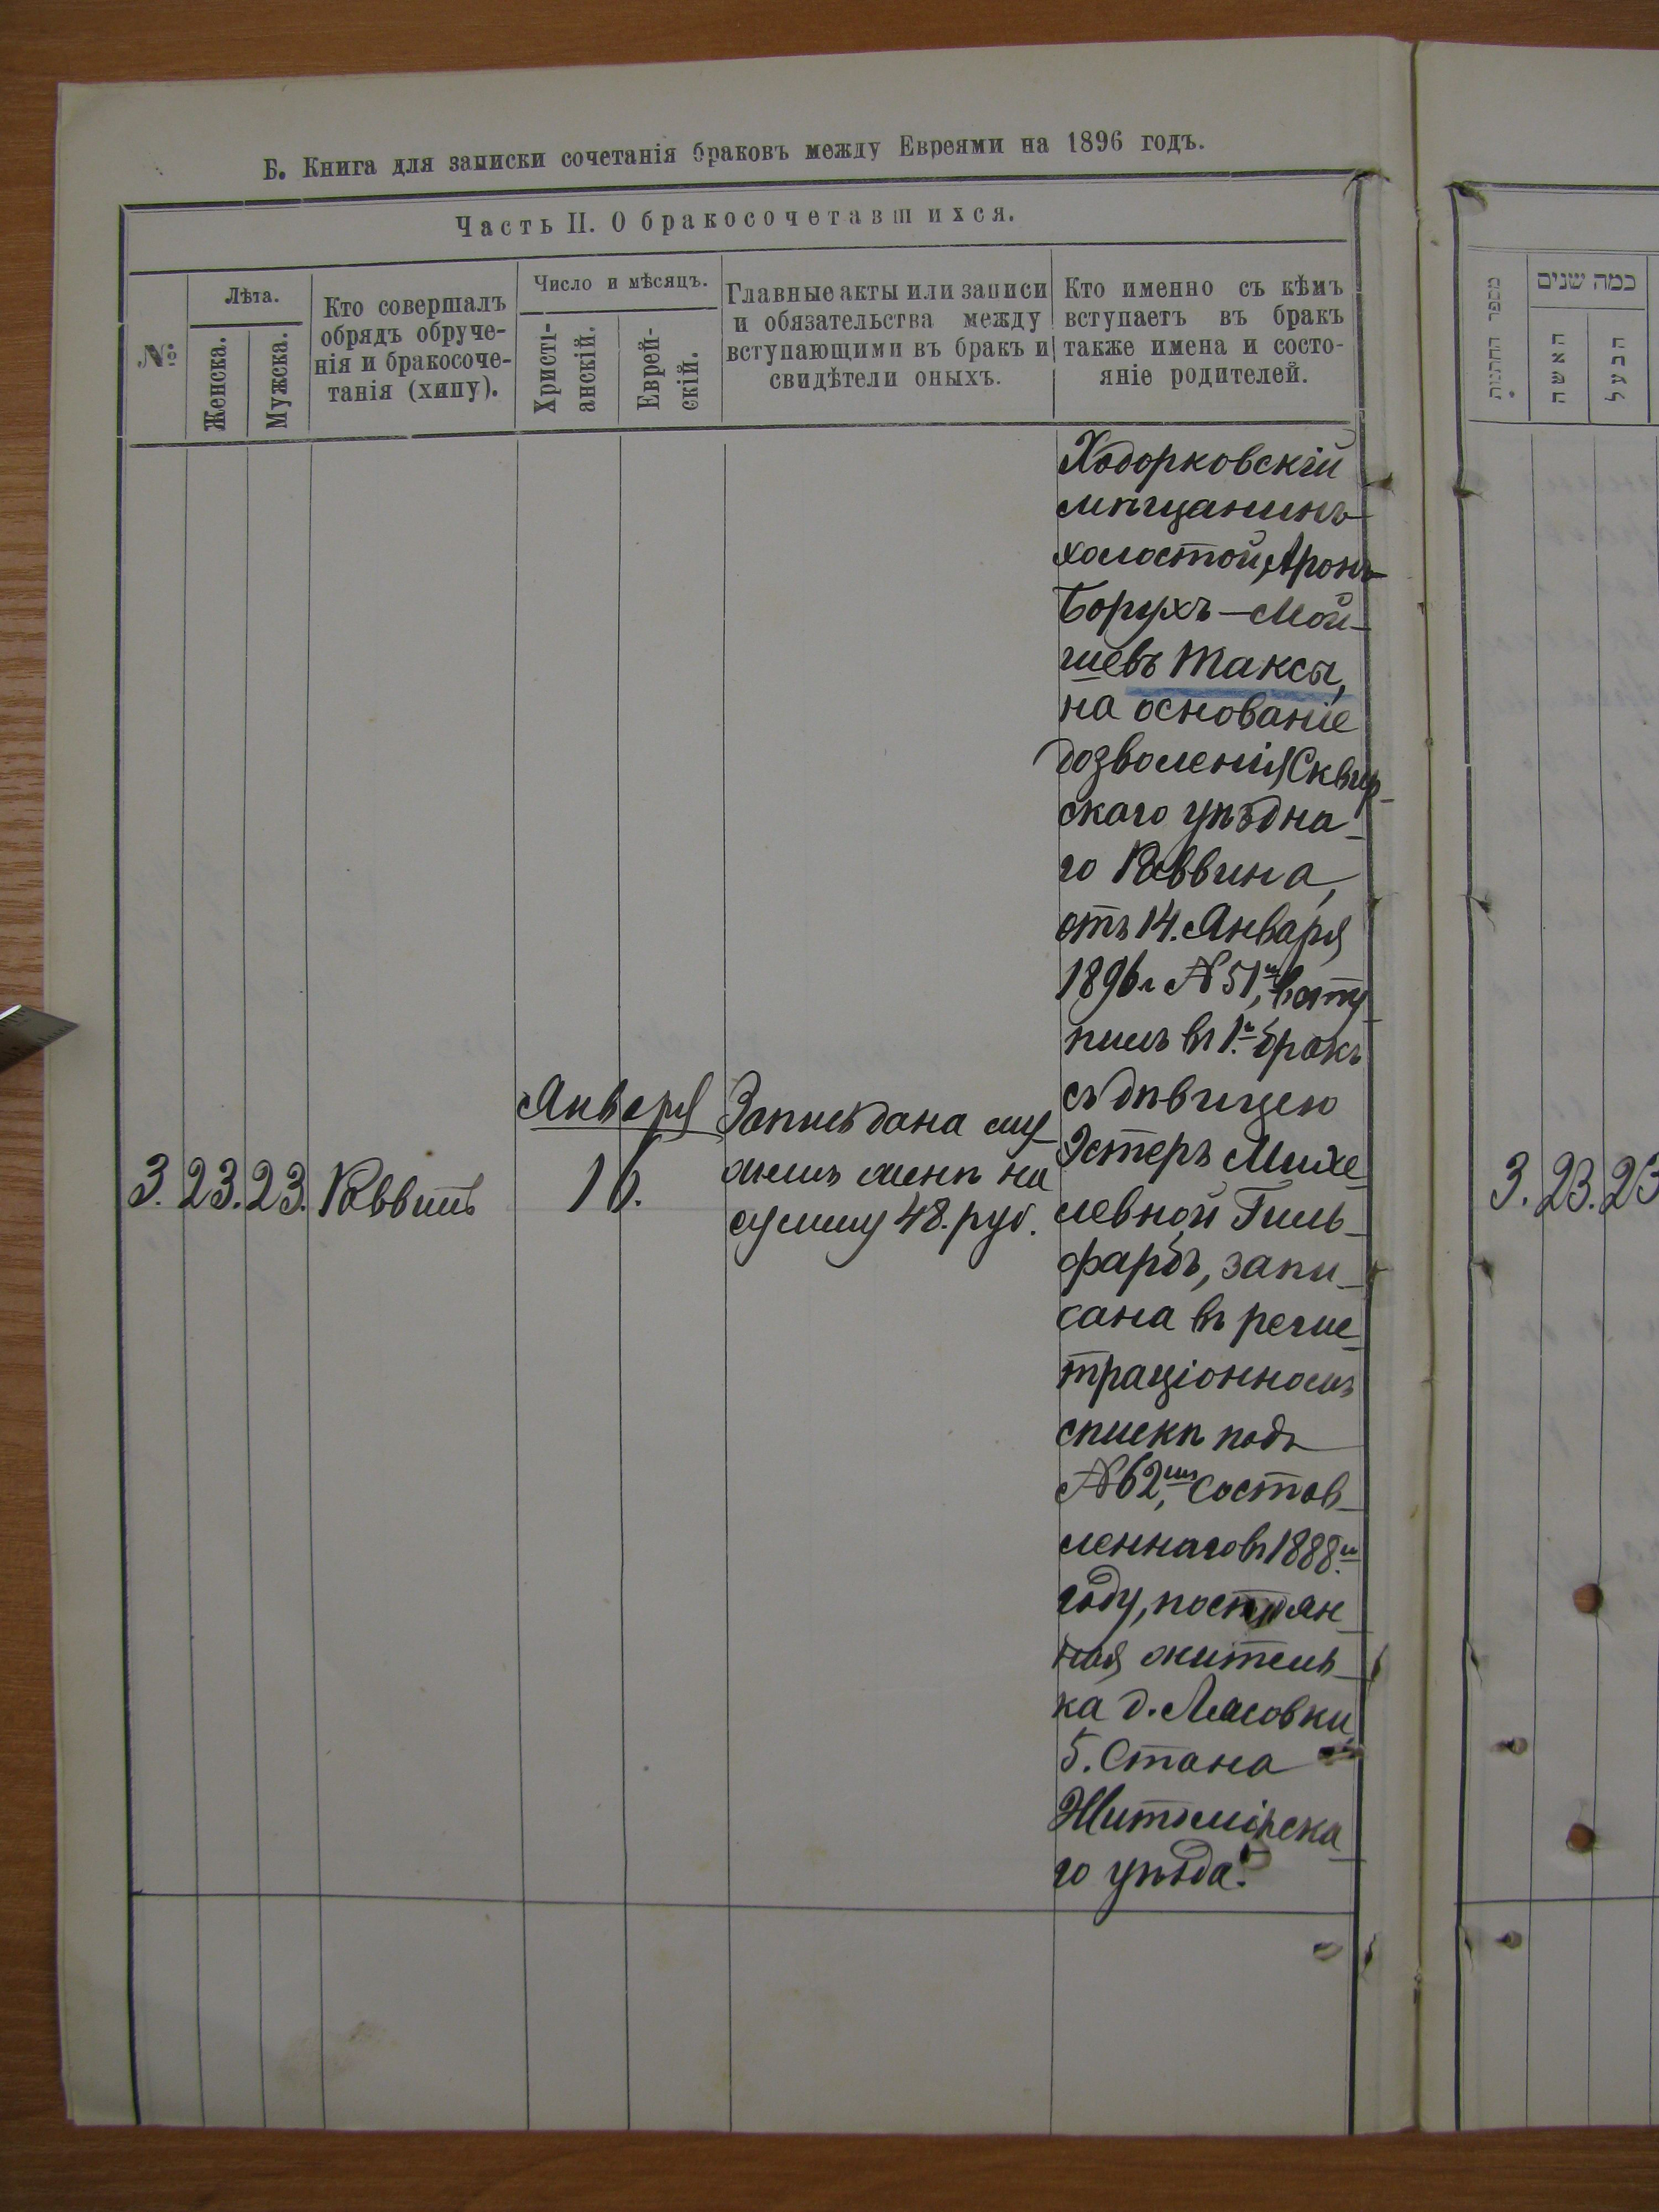 Б. Книга для записки сочетанія браковъ между Евреями на 1896 годъ.
Часть II. О бракосочетавшихся.
№
Лѣта.
Женска.
Мужска.
Кто совершалъ
обрядъ обруче-
нія и бракосоче-
танія (хипу).
Число и мѣсяцъ.
Христі-
анскій.
Еврей-
скій.
Главные акты или записи
и обязательства между
вступающими въ бракъ и
свидѣтели оныхъ.
Кто именно съ кѣмъ
вступаетъ въ бракъ
также имена и состо-
яніе родителей.
Ходорковскій
мѣщанинъ
холостой, Аронъ
Борухъ—Мой-
шевъ Таксы,
на основаніе
дозволенія Сквир-
скаго уѣздна-
го Раввина,
отъ 14. Января
1896 г № 51, всту
пилъ въ 1.й бракъ
съ дѣвицею
Эстеръ Михе-
левной Гиль-
фарбъ, запи-
сана въ регис-
траціонномъ
спискѣ подъ
№ 62мъ, состав-
леннаго въ 1888.м
году, постоян-
ная житель-
ка д.
5. Стана
Житомірска-
го уѣзда.
3.
23.
23.
Раввинъ
Января
16.
Запись дана му-
жемъ женѣ на
сумму 48. руб.
מספר החתנות
כמה שנים
האשה
הבעל
3. 23. 23